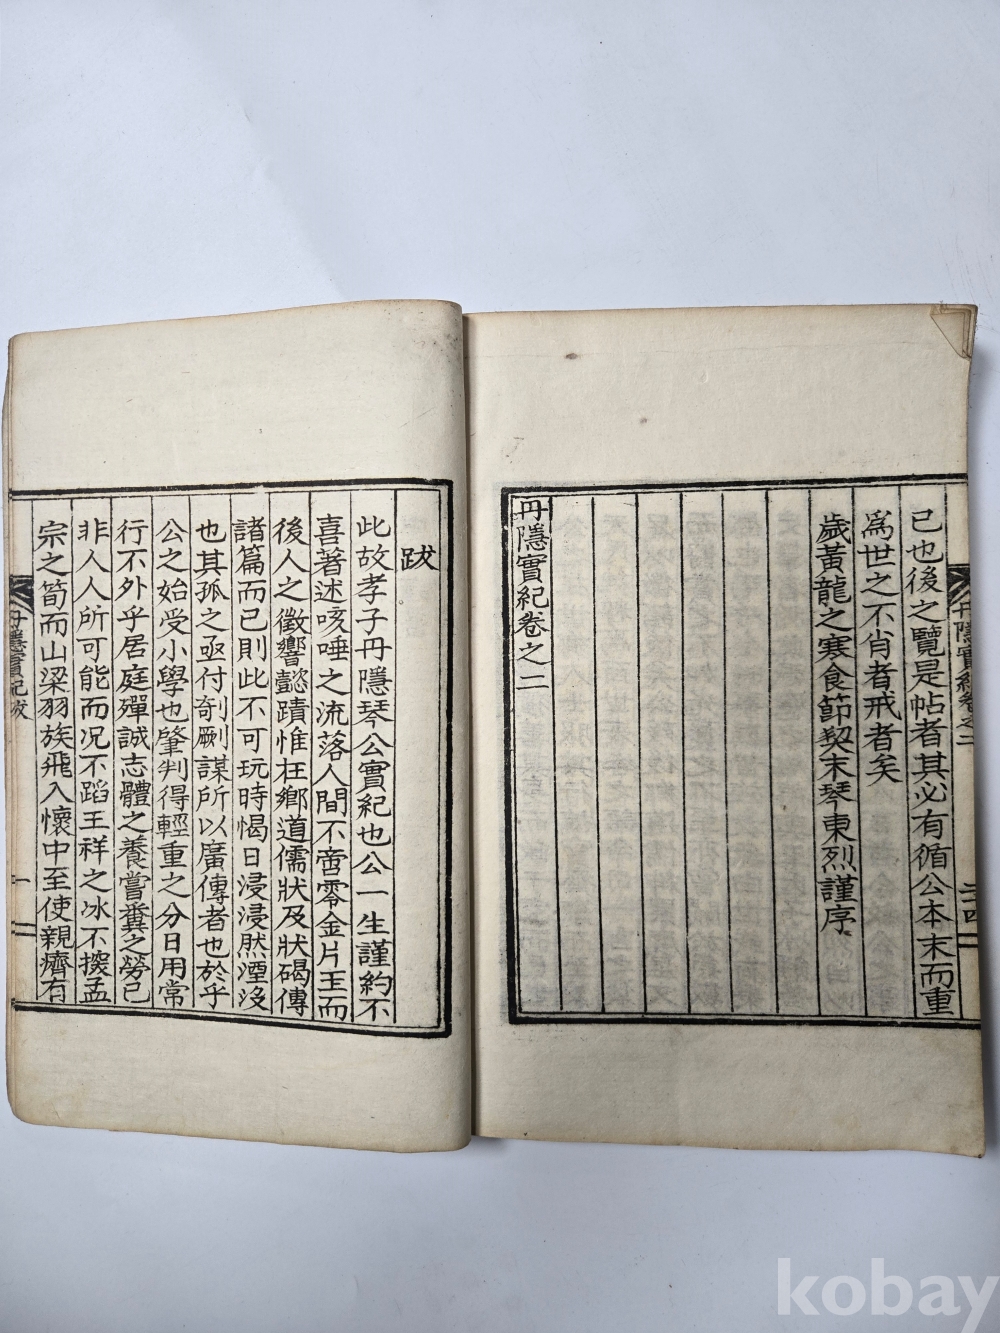 己也後之覽是帖者其必有循公本末而重
爲世之不肖者戒者矣
歲黃龍之寒食節契末琴東烈謹序
丹隱實紀卷之二
丹隱實紀卷之二
二十四
跋
此故孝子丹隱琴公實紀也公一生謹約不
喜著述咳唾之流落人間不啻零金片玉而
後人之徵響懿蹟惟在鄉道儒狀及狀碣傳
諸篇而已則此不可玩時愒日浸浸然湮沒
也其孤之亟付剞劂謀所以廣傳者也於乎
公之始受小學也肇判得輕重之分日用常
行不外乎居庭殫誠志體之養嘗糞之勞已
非人人所可能而况不蹈王祥之冰不搜孟
宗之筍而山梁羽族飛入懷中至使親癠有
丹隱實紀跋
一
kobay